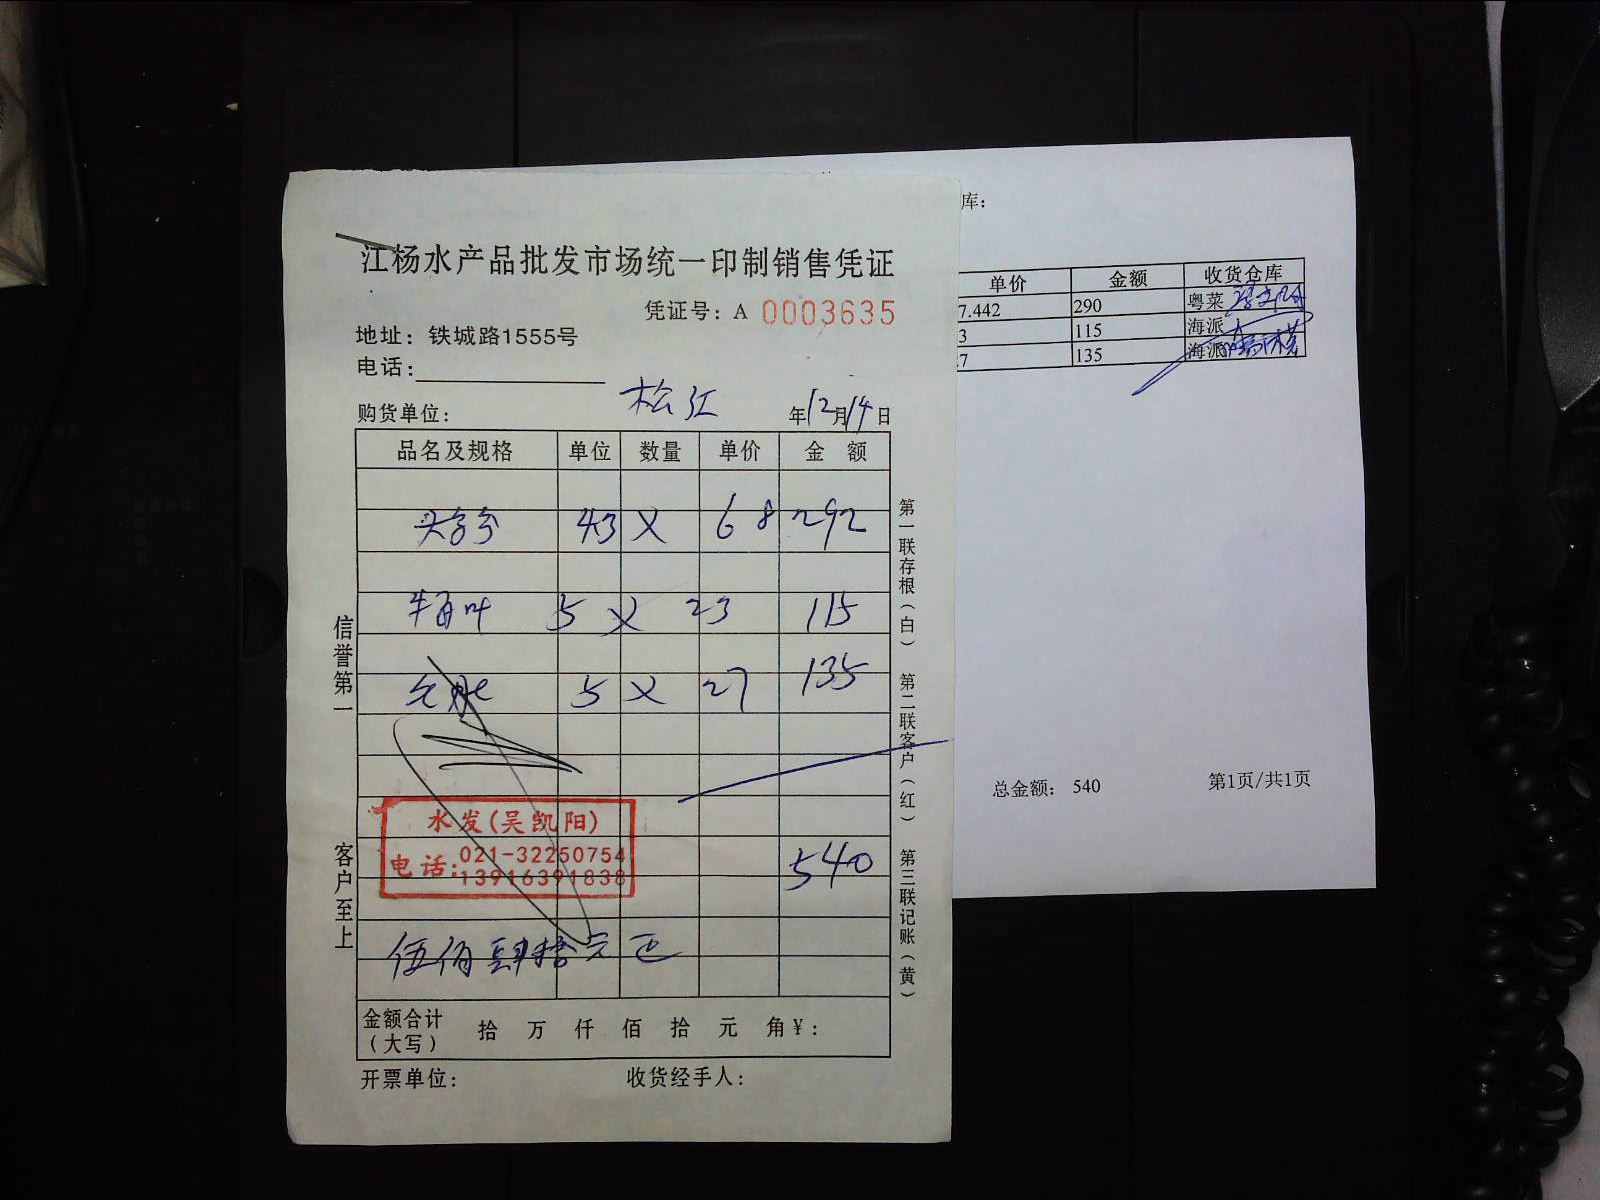 江杨水产品批发市场统一印制销售凭证
凭证号：A 0003635
地址：铁城路1555号
电话：
购货单位： 松江 年12月14日
品名及规格 单位 数量 单价 金 额
43 X 68 292
牛百叶 5 X 23 115
5 X 27 135
540
伍佰肆拾元正
金额合计（大写） 拾 万 仟 佰 拾 元 角￥：
开票单位： 收货经手人：
信誉第一
客户至上
第一联存根（白） 第二联客户（红） 第三联记账（黄）
水发(吴凯阳)
电话:021-32250754
13916391838
库：
单价 金额 收货仓库
7.442 290 粤菜
3 115 海派
7 135 海派
总金额： 540 第1页/共1页